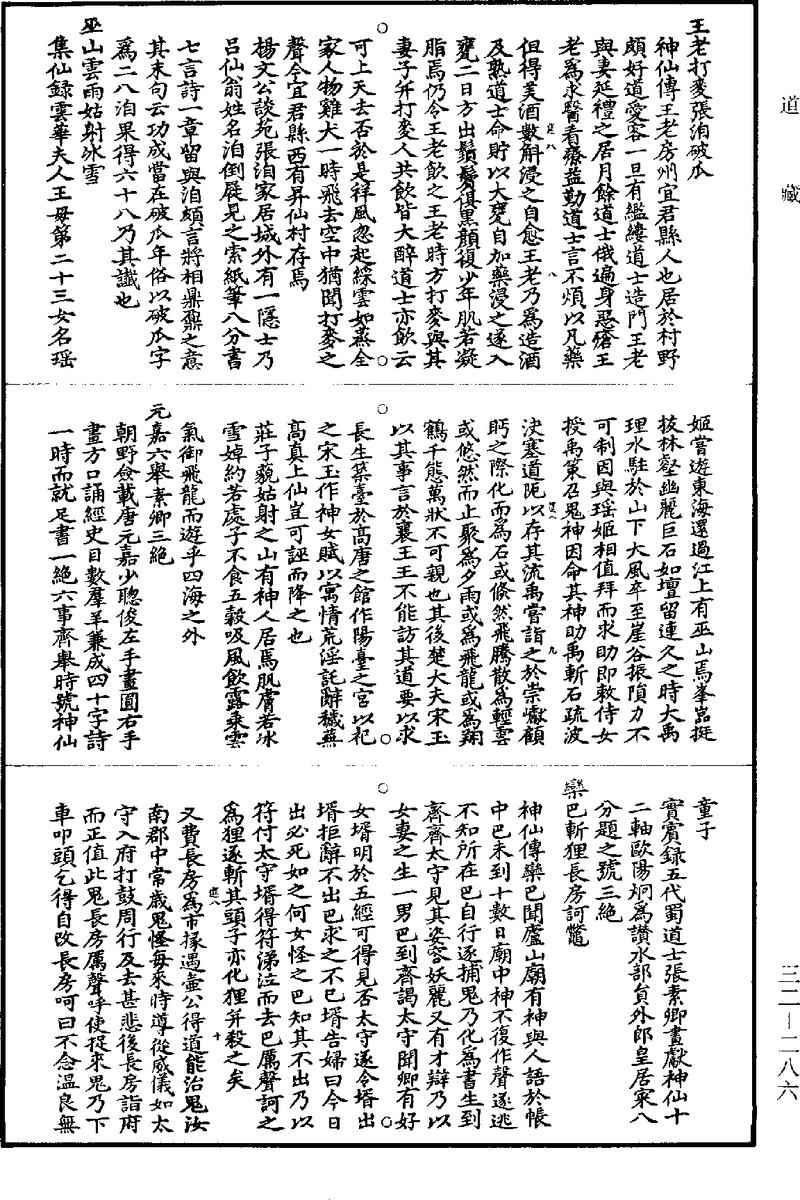 道藏
王老打麥張洎破瓜
神仙傳王老房州宜君縣人也居於村野
頗好道愛客一旦有繿縷道士造門王老
與妻延禮之居月餘道士俄遍身惡瘡王
老爲求醫看療益勤道士言不煩以凡藥
但得美酒數斛浸之自愈王老乃爲造酒
及熟道士命貯以大甕自加藥浸之遂入
甕二日方出鬚鬢俱黑顏復少年肌若凝
脂焉仍令王老飲之王老時方打麥與其
妻子幷打麥人共飲皆大醉道士亦飲云
可上天去否於是祥風忽起綵雲如蒸全
家人物雞犬一時飛去空中猶聞打麥之
聲今宜君縣西有昇仙村存焉
楊文公談苑張洎家居城外有一隱士乃
吕仙翁姓名洎倒屣見之索紙筆八分書
七言詩一章留與洎頗言將相鼎鼐之意
其末句云功成當在破瓜年俗以破瓜字
爲二八洎果得六十八乃其讖也
巫山雲雨姑射冰雪
集仙録雲華夫人王母第二十三女名瑶
姬嘗遊東海還過江上有巫山焉峯岩挺
拔林壑幽麗巨石如壇留連久之時大禹
理水駐於山下大風卒至崖谷振隕力不
可制因與瑶姬相值拜而求助即敕侍女
授禹策召鬼神因命其神助禹斬石疏波
決塞道阨以存其流禹嘗詣之於崇巘顧
眄之際化而爲石或倏然飛騰散爲輕雲
或悠然而止聚爲夕雨或爲飛龍或爲翔
鶴千態萬狀不可親也其後楚大夫宋玉
以其事言於襄王王不能訪其道要以求
長生築臺於高唐之館作陽臺之宮以祀
之宋玉作神女賦以寓情荒淫託辭穢蕪
高真上仙豈可誣而降之也
莊子藐姑射之山有神人居焉肌膚若冰
雪婥約若處子不食五穀吸風飲露乘雲
氣御飛龍而遊乎四海之外
元嘉六舉素卿三絶
朝野僉載唐元嘉少聰俊左手畫圓右手
畫方口誦經史目數羣羊兼成四十字詩
一時而就足書一絶六事齊舉時號神仙
童子
實賓録五代蜀道士張素卿畫獻神仙十
二軸歐陽炯爲讚水部貟外郎皇居寀八
分題之號三絶
欒巴斬狸長房訶鼈
神仙傳欒巴聞廬山廟有神與人語於帳
中巴未到十數日廟中神不復作聲遂逃
不知所在巴自行逐捕鬼乃化爲書生到
齊齊太守見其姿容妖麗又有才辯乃以
女妻之生一男巴到齊謁太守聞卿有好
女壻明於五經可得見否太守遂令壻出
壻拒辭不出巴求之不已壻告婦曰今日
出必死如之何女怪之巴知其不出乃以
符付太守壻得符涕泣而去巴厲聲訶之
爲狸遂斬其頭子亦化狸幷殺之矣
又費長房爲市掾遇壺公得道能治鬼汝
南郡中常歲鬼怪每來時導從威儀如太
守入府打鼓周行及去甚悲後長房詣府
而正值此鬼長房厲聲呼使捉來鬼乃下
車叩頭乞得自改長房呵曰不念温良無
三二—二八六